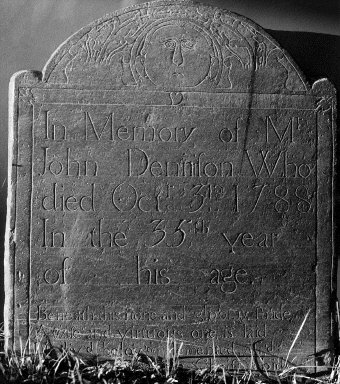 In Memory of Mr
John Dennison Who
died Octr 31st 1788
In the 35th year
of his age.
Beneath this stone and
virtuous one is laid